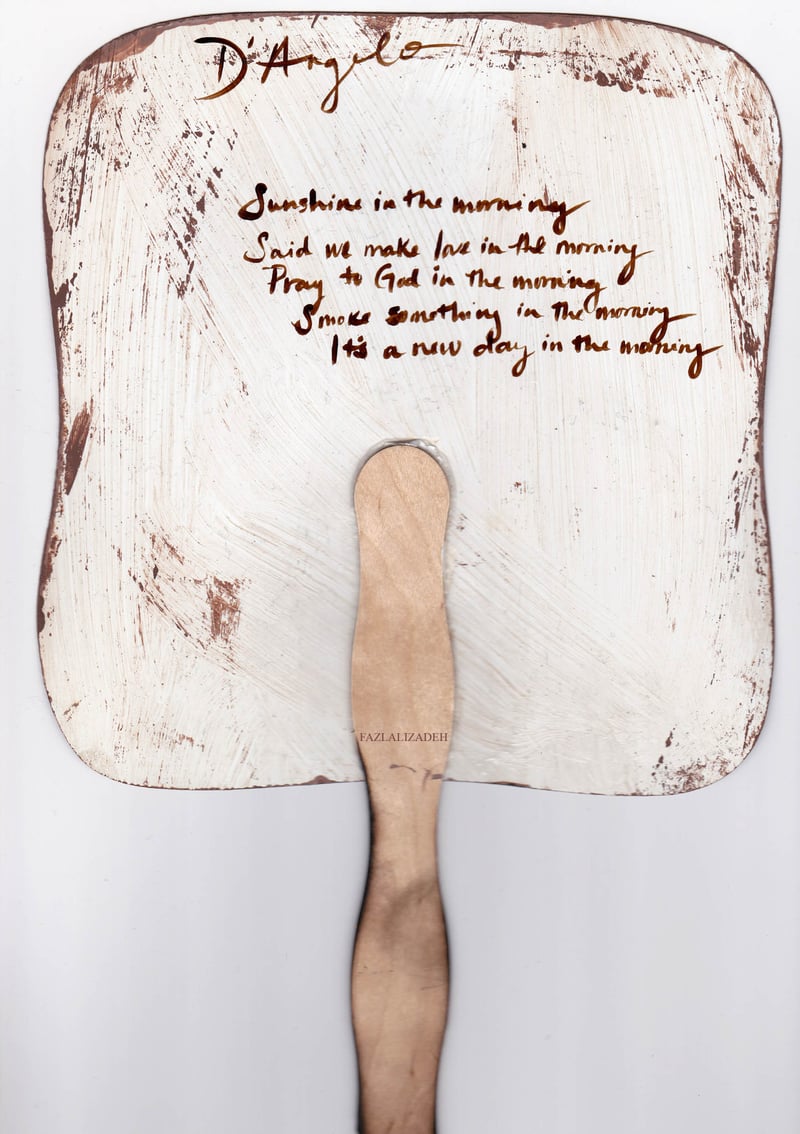 D'Angelo
Sunshine in the morning
Said we make love in the morning
Pray to God in the morning
Smoke something in the morning
It's a new day in the morning
FAZLALIZADEH